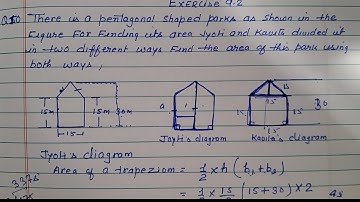 EXERCISE 9.2
There is a pentagonal shaped parks as shown in the
Figure For Finding its area Jyoti and Kavita divided it
in two different ways Find the area of this park using
both ways,
15m 15m 30m
15
a
15 15
15
30
15
Jyoti's diagram Kavita's diagram
Jyoti's diagram
Area of a trapeziom = 1/2 x h (b1 + b2)
= 1/2 x 15/2 (15+30) x 2